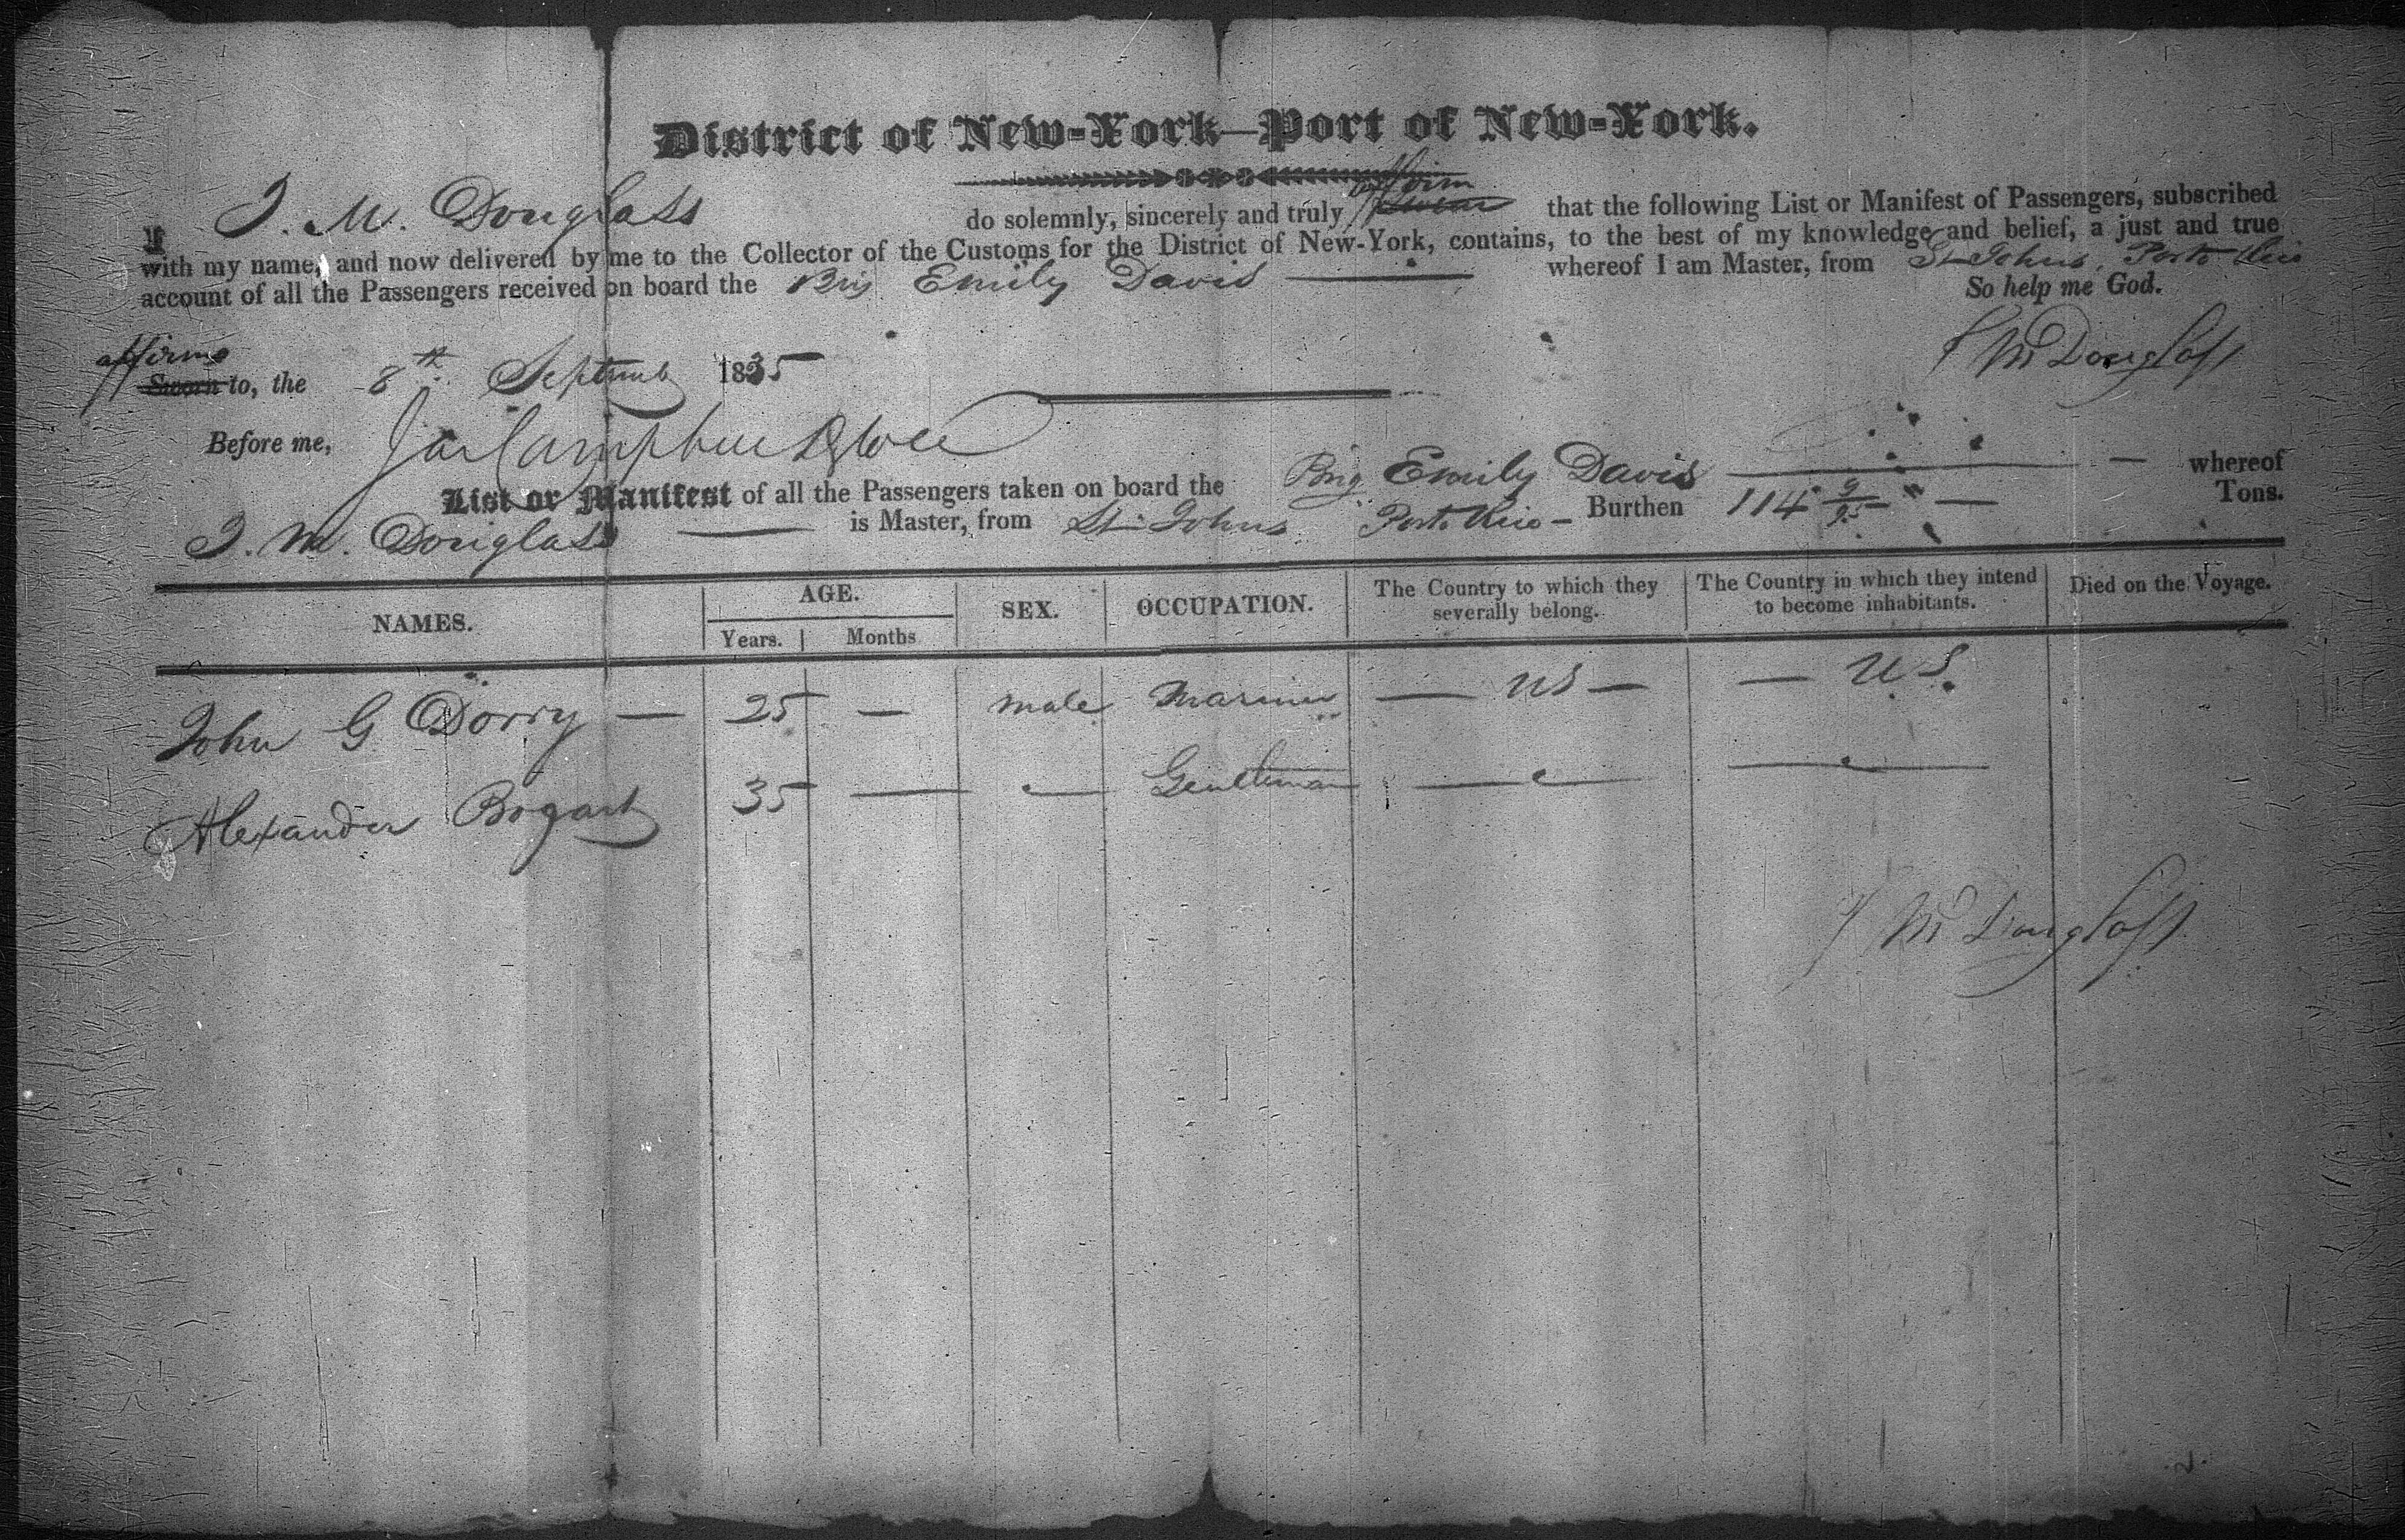 District of New-York—Port of New-York.
I J. M. Douglass do solemnly, sincerely and truly affirm swear that the following List or Manifest of Passengers, subscribed
with my name, and now delivered by me to the Collector of the Customs for the District of New-York, contains, to the best of my knowledge and belief, a just and true
account of all the Passengers received on board the Brig Emily Davis — whereof I am Master, from St Johns, Porto Rico
So help me God.
J M Douglass
affirmd
Sworn to, the 8th Septemb 1835
Before me,
List or Manifest of all the Passengers taken on board the Brig Emily Davis — whereof
J. M. Douglass — is Master, from St Johns Porto Rico – Burthen 114 9/95 — Tons.
NAMES. AGE. SEX. OCCUPATION. The Country to which they severally belong. The Country in which they intend to become inhabitants. Died on the Voyage.
Years. Months
John G Dorry — 25 — male Mariner — US — — U.S.
Alexander Bogart 35 — " Gentleman — " — — " —
J M Douglass